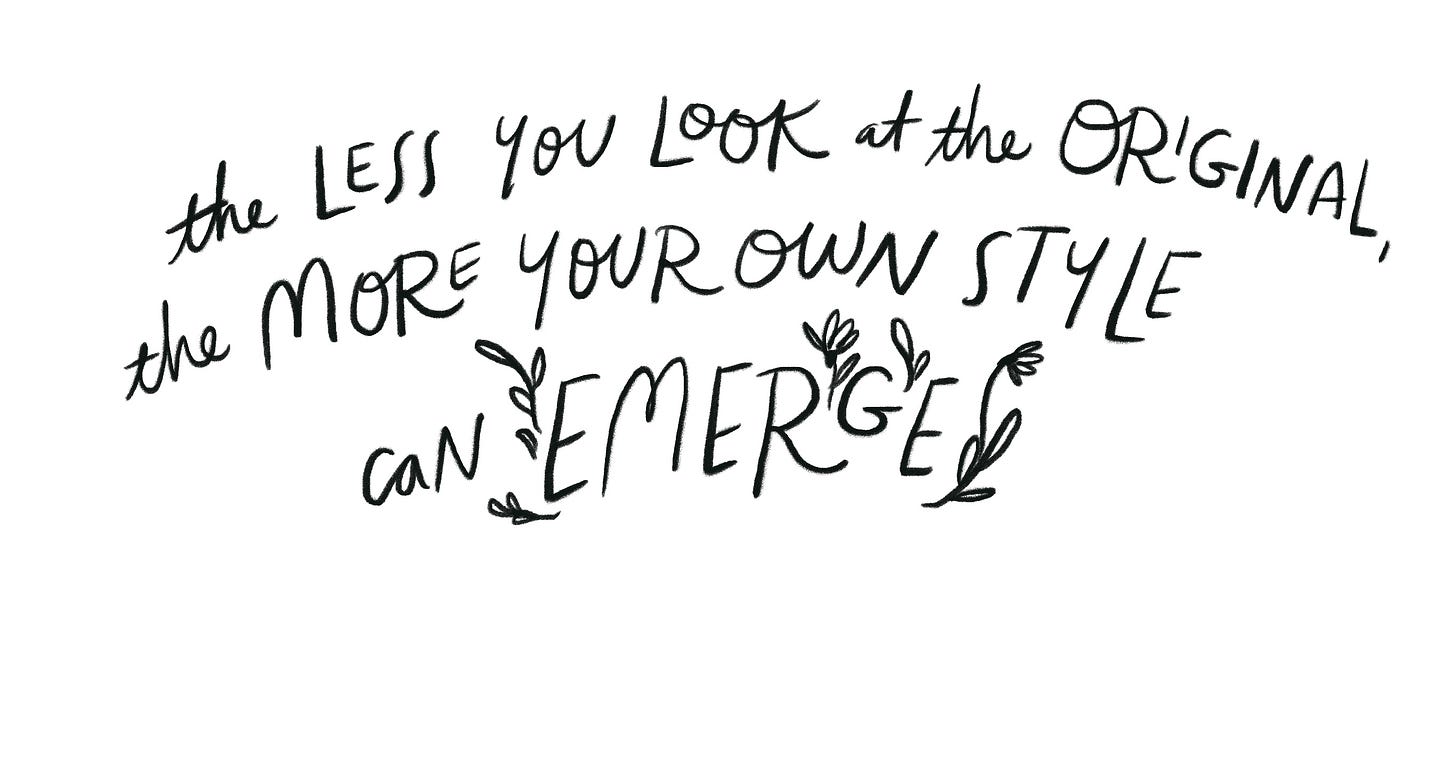 the LESS YOU LOOK at the ORIGINAL,
the MORE YOUR OWN STYLE
caN EMERGE